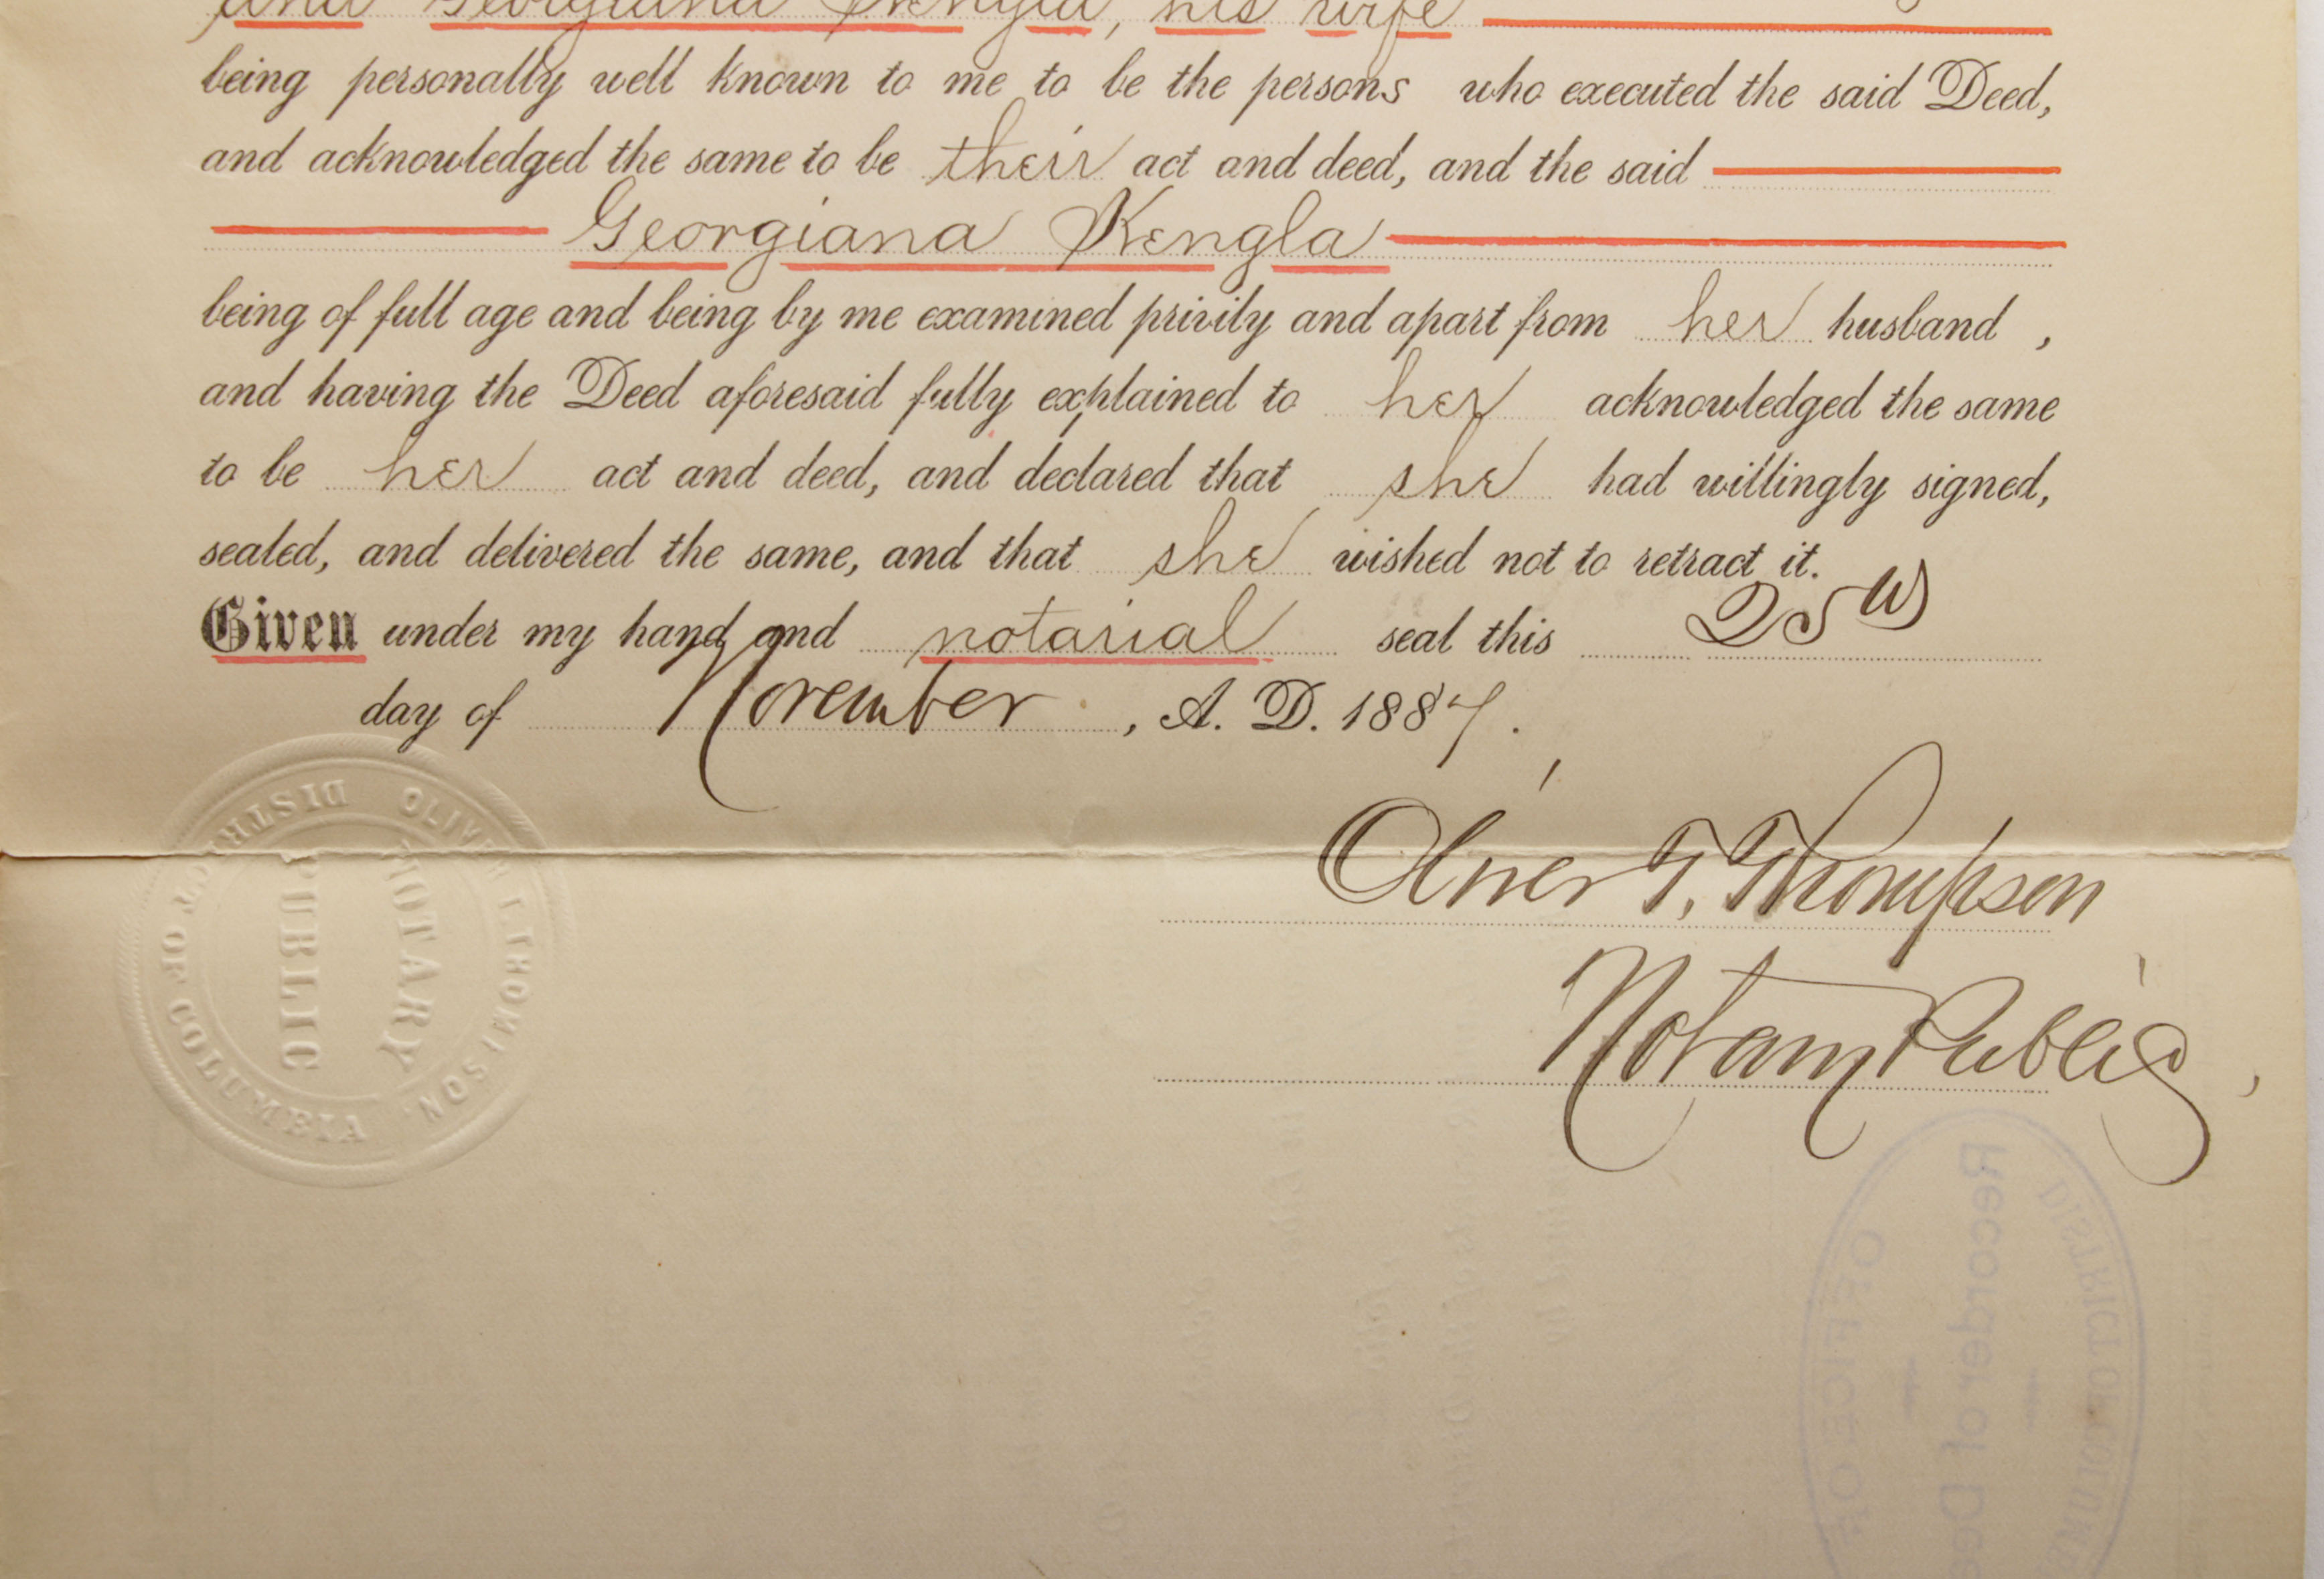 and Georgiana Kengla, his wife
being personally well known to me to be the persons who executed the said Deed,
and acknowledged the same to be their act and deed, and the said
Georgiana Kengla
being of full age and being by me examined privily and apart from her husband ,
and having the Deed aforesaid fully explained to her acknowledged the same
to be her act and deed, and declared that she had willingly signed,
sealed, and delivered the same, and that she wished not to retract it.
Given under my hand and notarial seal this 25th
day of November , A. D. 1887.
Oliver T. Thompson
Notary Public,
OLIVER T THOMPSON
NOTARY
PUBLIC
DISTRICT OF COLUMBIA
OFFICE OF
Recorder of Dee
DISTRICT OF COLUM